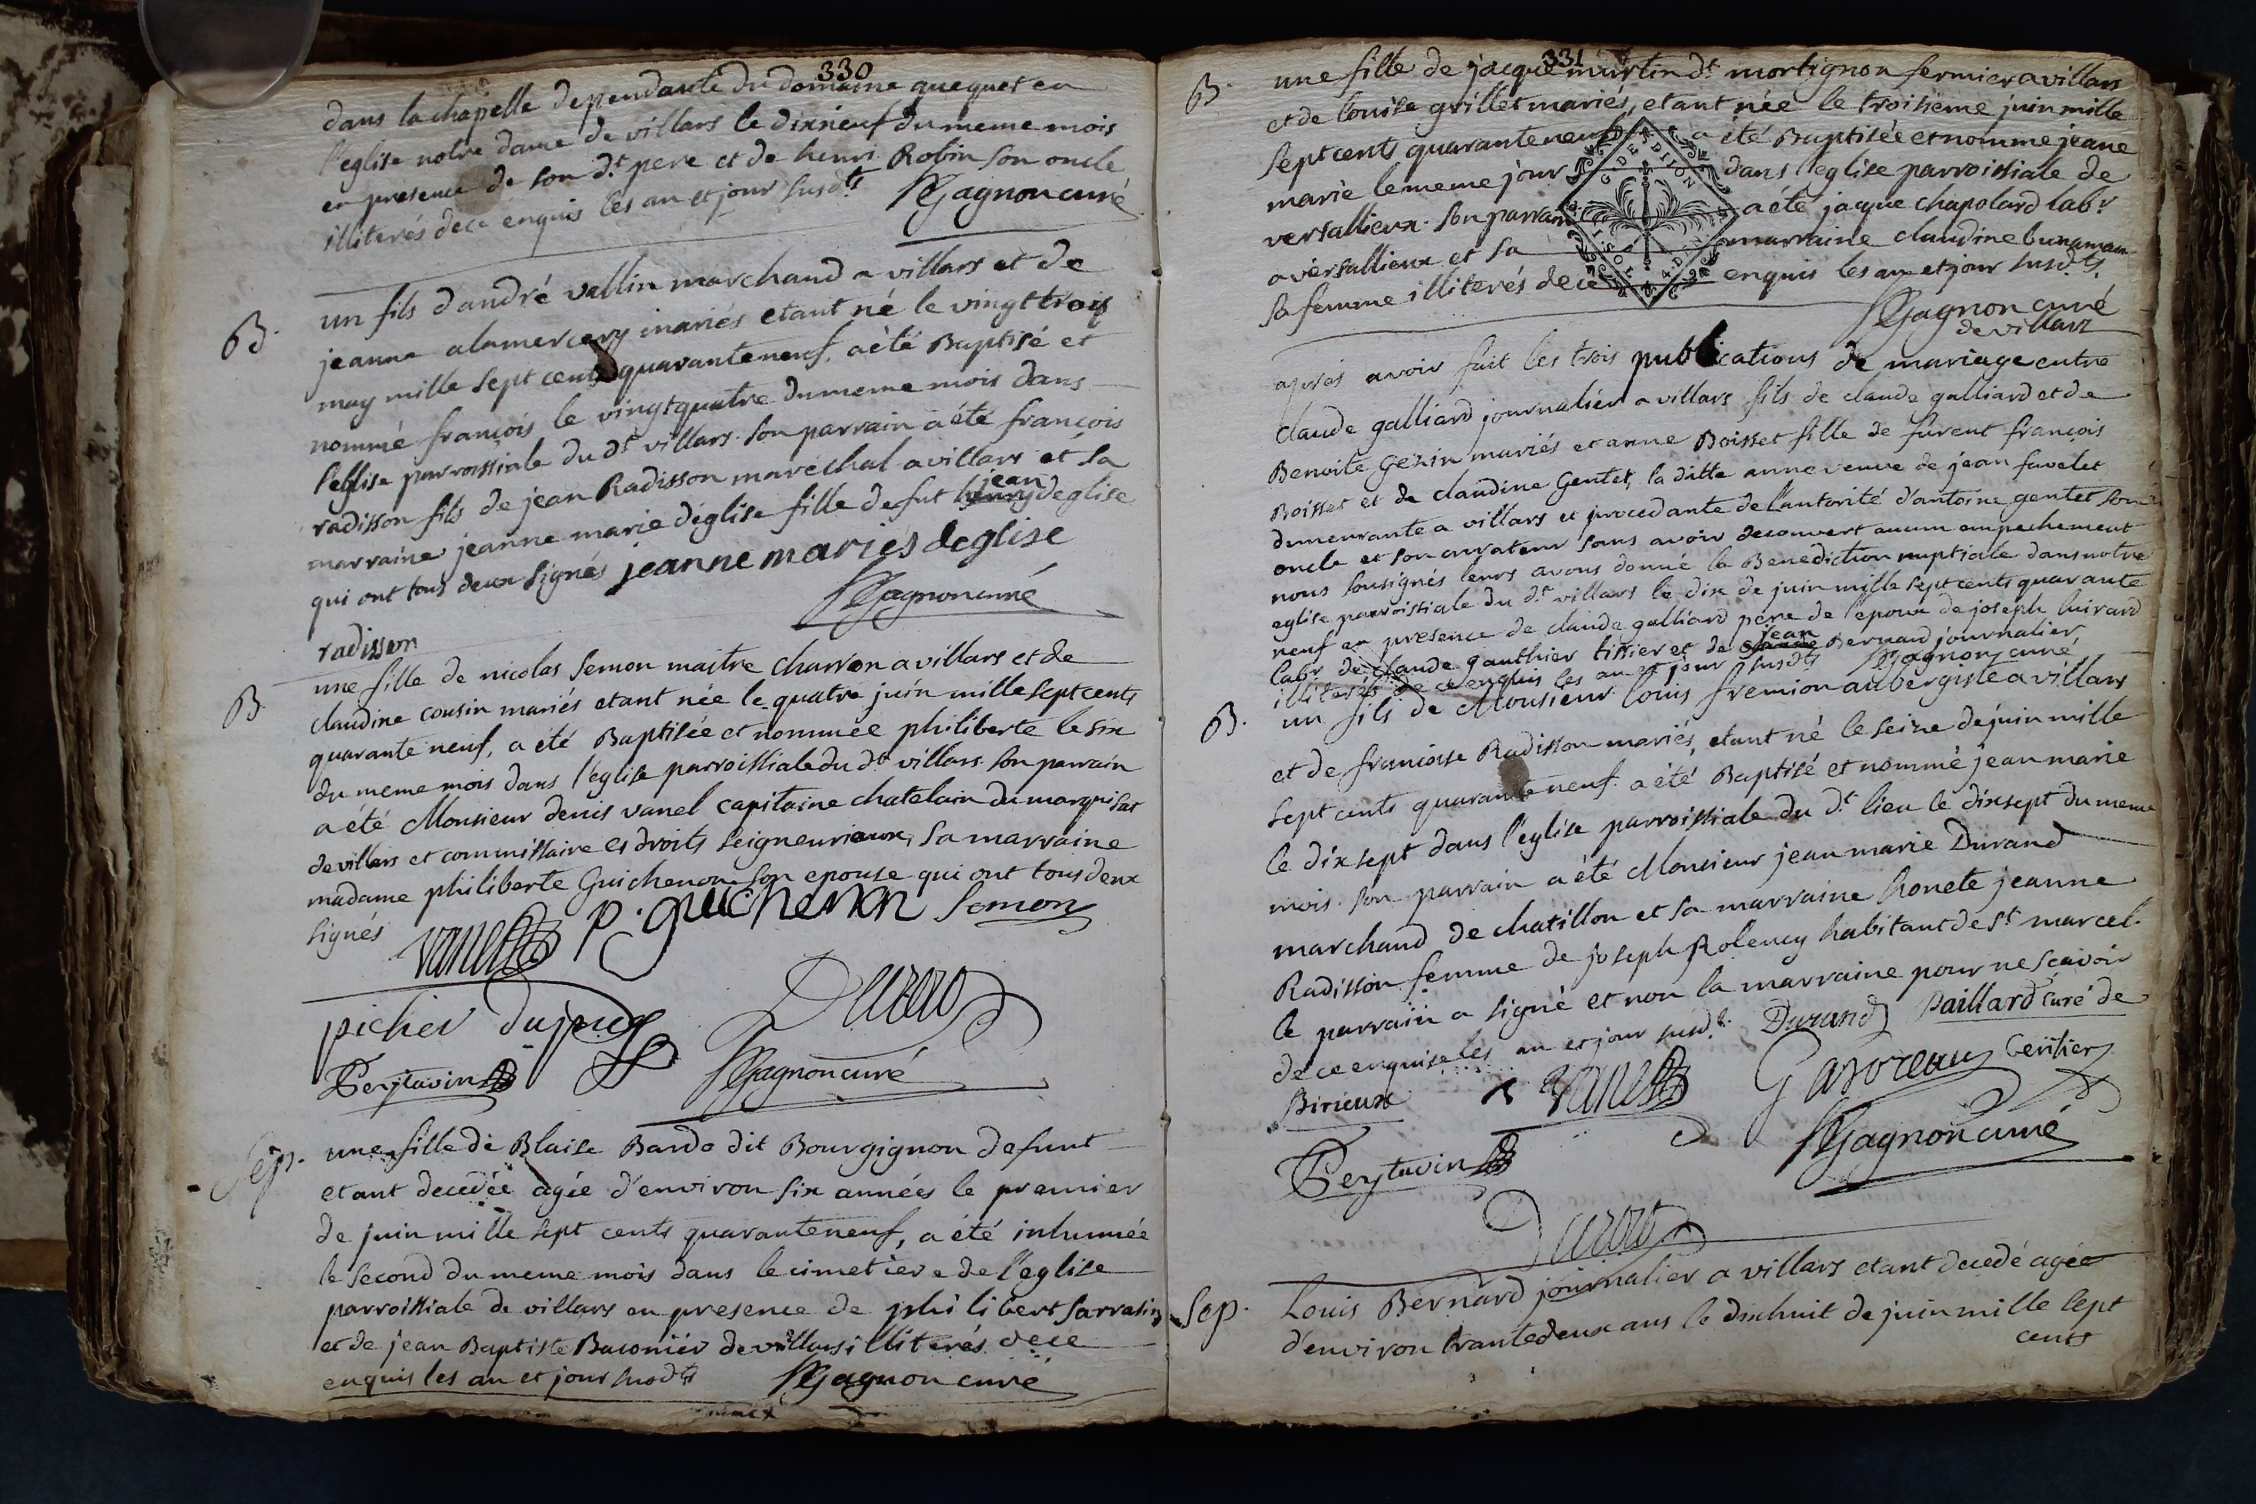 330
dans la chapelle dependante du domaine quequet en
l'eglise notre dame de villars le dixneuf du meme mois
en presence de son dt pere et de henri Robin son oncle
illiterés de ce enquis les an et jour susdts Gagnon curé
B. un fils d'andré vallin marchand a villars et de
jeanne alamercery mariés etant né le vingt trois
may mille sept cents quaranteneuf, a été Baptisé et
nommé françois le vingtquatre du meme mois dans
l'eglise parroissiale du dt villars. son parrain a été françois
radisson fils de jean Radisson marechal a villars et sa
marraine jeanne marie deglise fille de fut jean deglise
qui ont tous deux signés jeanne maries deglise
radisson Gagnon curé
B une fille de nicolas semon maitre charron a villars et de
claudine cousin mariés etant née le quatre juin mille sept cents
quarante neuf, a été Baptisée et nommée philiberte le six
du meme mois dans l'eglise parroissiale du dt villars. son parrain
a été Monsieur denis vanel capitaine chatelain du marquisat
de villars et commissaire es droits seigneuriaux, sa marraine
madame philiberte Guichenon son epouse qui ont tous deux
signés vanel p. guichenon Semon
pichet dupuis
Peytavin Gagnon curé
Sep. une fille de Blaise Bardo dit Bourgignon defunt
etant decedée agée d'environ six années le premier
de juin mille sept cents quaranteneuf, a été inhumée
le second du meme mois dans le cimetiere de l'eglise
parroissiale de villars en presence de philibert sarrasin
et de jean Baptiste Baconier de villars illiterés de ce
enquis les an et jour susdts Gagnon curé
331
B. une fille de jacque martin dt mortignon fermier a villars
et de louise grillet mariés, etant née le troisième juin mille
sept cents quaranteneuf a été Baptisée et nommé jeane
marie le meme jour dans l'eglise parroissiale de
versallieux. son parrain a été jacque chapolard labr
a versallieux et sa marraine claudine
sa femme illiterés de ce enquis les an et jour susdts
G. DE DIJON
4 D
Gagnon curé
de villars
apres avoir fait les trois publications de mariage entre
claude galliard journalier a villars fils de claude galliard et de
Benoite Gezin mariés et anne Boisset fille de furent françois
Boisset et de claudine Gentet, la ditte anne veuve de jean favelet
demeurante a villars et procedante de l'autorité d'antoine gentet son
oncle et son curateur sans avoir decouvert aucun empechement
nous sousignés leurs avons donné la Benediction nuptiale dans notre
eglise parroissiale du dt villars le dix de juin mille sept cents quarante
neuf en presence de claude galliard pere de l'epoux de joseph luirard
labr de claude gauthier tissier et de jean Bernard journalier,
illiterés de ce enquis les an et jour susdts Gagnon curé
B. un fils de Monsieur louis fremion aubergiste a villars
et de françoise Radisson mariés, etant né le seize de juin mille
sept cents quarante neuf. a été Baptisé et nommé jean marie
le dix sept dans l'eglise parroissiale du dt lieu le dixsept du meme
mois. son parrain a été Monsieur jean marie Durand
marchand de chatillon et sa marraine honete jeanne
Radisson femme de joseph Rolency habitant de st marcel.
le parrain a signé et non la marraine pour ne sçavoir
de ce enquise les an et jour susdt. Durand Paillard curé de
Birieux vanel Gavoreau
Peytavin Gagnon curé
Sep. Louis Bernard journalier a villars etant decedé agée
d'environ trantedeux ans le dixhuit de juin mille sept
cents